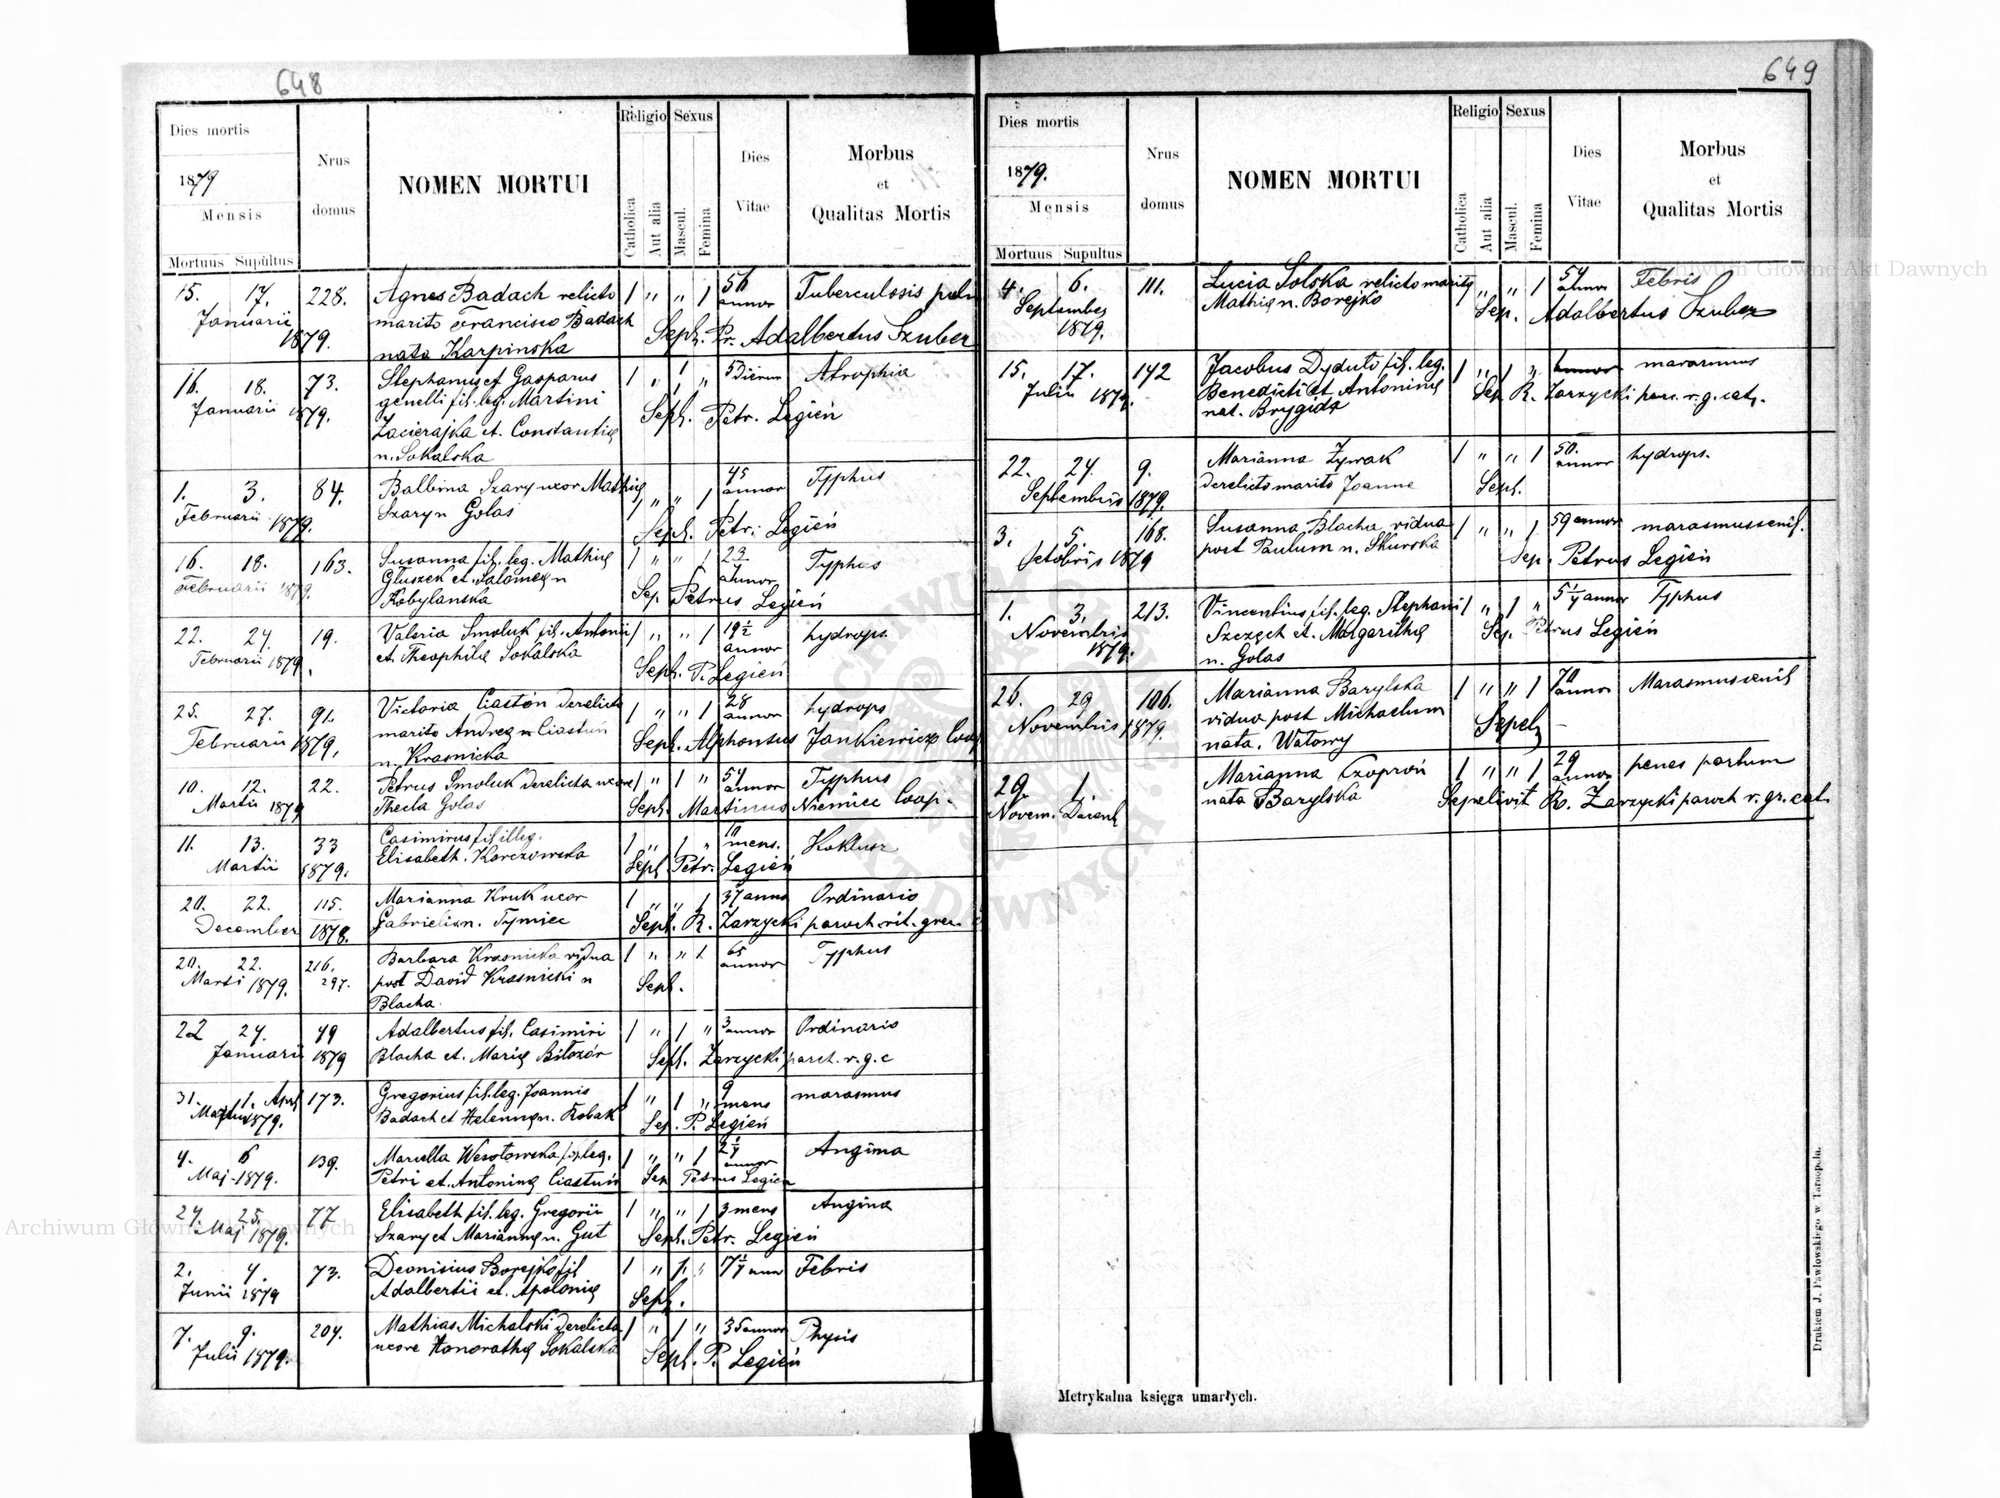 648
Dies mortis
1879
Mensis
Mortuus Supultus
Nrus
domus
NOMEN MORTUI
Religio Sexus
Catholica
Aut alia
Mascul.
Femina
Dies
Vitae
Morbus
et
Qualitas Mortis
15. 17. 228. Agnes Badach relicto 1 " " 1 56 Tuberculosis pulm
Januarii marito Francisco Badach annor
1879. nata Karpinska Seph. Pr. Adalbertus Szuber
16. 18. 73. Stephanus et Gasparus 1 " 1 " 5 dierum Atrophia
Januarii 1879. gemelli fil. leg. Martini Seph. Petr. Legień
Zacierajka et. Constantię
n. Sokalska
1. 3. 84. Balbina Szary uxor Mathię 1 " " 1 45 annor Typhus
Februarii 1879. Szary n Golas Seph. Petr. Legień
16. 18. 163. Susanna fil. leg. Mathię 1 " " 1 23 Typhus
Februarii 1879. Głuszek et. Salomeę n annor
Kobylanska Sep Petrus Legień
22. 24. 19. Valeria Smoluk fil. Antonii 1 " " 1 19½ hydrops
Februarii 1879. et Theophilę Sokalska annor
Seph. P. Legień
25. 27. 91. Victoria Ciastoń derelicto 1 " " 1 28 annor hydrops
Februarii 1879. marito Andrea Ciastuń Seph. Alphonsus Jankiewicz Coop
n. Krasnicka
10. 12. 22. Petrus Smoluk derelicta uxore 1 " 1 " 54 annor Typhus
Martii 1879 Thecla Golas Seph. Martinus Niemiec Coop.
11. 13. 33 Casimirus fil. illeg. 1 " 1 " 10 mens. Koklusz
Martii 1879. Elisabeth. Korczowska Seph Petr. Legień
20. 22. 115. Marianna Kruk uxor 1 " " 1 37 anno Ordinario
December 1878. Gabrielis n. Tymiec Seph. R. Zarzycki paroch rit. graec
20. 22. 216. Barbara Krasnicka vidua 1 " " 1 65 annor Typhus
Marti 1879. 297. post David Krasnicki n Seph.
Blacha
22 24. 49 Adalbertus fil. Casimiri 1 " 1 " 3 annor Ordinario
Januarii 1879 Blacha et. Marię Biłozór Seph. Zarzycki paroch. r. g. c
31. 1. Apr 173. Gregorius fil. leg. Joannis 1 " 1 " 9 mens marasmus
Martius 1879. Badach et Helennę n. Kobak Sep. P. Legień
4. 6 139. Marcella Wesołowska fil. leg. 1 " " 1 2¼ annor Angina
Maj. 1879. Petri et. Antoninę Ciastuń Sep Petrus Legień
24. 25. 77 Elisabeth fil. leg. Gregorii 1 " " 1 3 mens Angina
Maj 1879. Szary et Mariannę n. Gut Seph. Petr. Legień
2. 4. 73. Deonisius Borejko fil 1 " 1. " 7¼ ann Febris
Junii 1879 Adalbertii et. Apolonię Seph.
7. 9. 204. Mathias Michalski derelicta 1 " 1 " 35 annor Physis
Julii 1879. uxore Honorathę Sokalska Seph. P. Legień
649
Dies mortis
1879.
Mensis
Mortuus Supultus
Nrus
domus
NOMEN MORTUI
Religio Sexus
Catholica
Aut alia
Mascul.
Femina
Dies
Vitae
Morbus
et
Qualitas Mortis
4. 6. 111. Lucia Solska relicto marito " " 1 54 annor Febris
September Mathię n. Borejko Sep. Adalbertus Szuber
1879.
15. 17. 142 Jacobus Dyduto fil. leg. 1 " 1 " annor marasmus
Julii 1879. Benedicti et. Antoninę Sep R. Zarzycki paro. r. g. cat.
nat. Brygida
22. 24. 9. Marianna Żywak 1 " " 1 50. annor hydrops.
Septembris 1879. derelicto marito Joanne Seph.
3. 5. 168. Susanna Blacha vidua 1 " " 1 59 annor marasmus senil.
Octobris 1879 post Paulum n. Skurska Sep. Petrus Legień
1. 3. 213. Vincentius fil. leg. Stephani 1 " 1 " 5¼ annor Typhus
Novembris Szczęch et. Margarithę Sep. Petrus Legień
1879. n. Golas
26. 29 106. Marianna Barylska 1 " " 1 70 annor Marasmus senil
Novembris 1879. vidua post Michaelum Sepel
nata. Watowy
29. 1. Marianna Czoproń 1 " " 1 29 annor penes partum
Novem. Decemb nata Barylska Sepelivit R. Zarzycki paroch r. gr. cat.
Metrykalna księga umarłych.
Drukiem J. Pawłowskiego w Tarnopolu.
Archiwum Główne Akt Dawnych
Archiwum Główne Akt Dawnych
ARCHIWUM GŁÓWNE AKT DAWNYCH